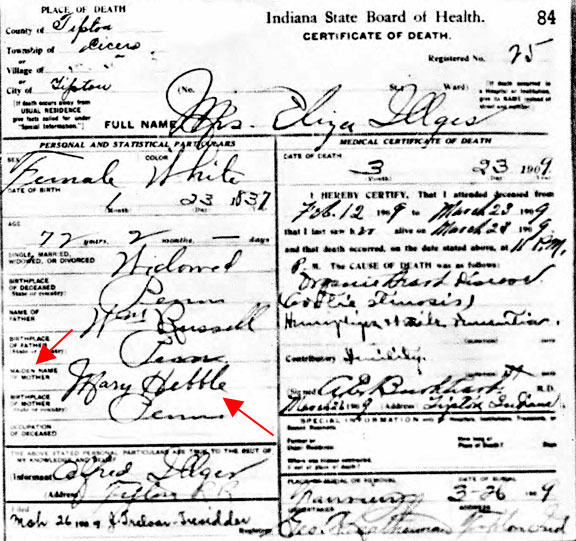 PLACE OF DEATH
County of Tipton
Township of Cicero
or
Village of
or
City of Tipton
(No. St.; Ward)
[If death occurs away from
USUAL RESIDENCE
give facts called for under
"Special Information."]
Indiana State Board of Health.
84
CERTIFICATE OF DEATH.
Registered No. 25
[If death occurred in
a Hospital or Institution,
give its NAME instead of
street and number.]
FULL NAME Mrs. Eliza Illges
PERSONAL AND STATISTICAL PARTICULARS
SEX Female
COLOR White
DATE OF BIRTH
1 23 1837
(Month) (Day)
AGE
72 years, 2 months, — days
SINGLE, MARRIED,
WIDOWED, OR DIVORCED
Widowed
BIRTHPLACE
OF DECEASED
(State or country)
Penn
NAME OF
FATHER
Wm Russell
BIRTHPLACE
OF FATHER
(State or country)
Penn
MAIDEN NAME
OF MOTHER
Mary Hebble
BIRTHPLACE
OF MOTHER
(State or country)
Penn
OCCUPATION
OF DECEASED
THE ABOVE STATED PERSONAL PARTICULARS ARE TRUE TO THE BEST OF
MY KNOWLEDGE AND BELIEF
Informant Alfred Illges
(Address) Tipton RR
Filed
Mch 26 1909
Registrar
MEDICAL CERTIFICATE OF DEATH
DATE OF DEATH
3 23 1909
(Month) (Day)
I HEREBY CERTIFY, That I attended deceased from
Feb. 12 1909 to March 23 1909
that I last saw alive on March 1909
and that death occurred, on the date stated above, at
P. M. The CAUSE OF DEATH was as follows:
Organic Heart Disease
Contributory Senility
(Signed) Burkhart M.D.
March 26 1909 (Address) Tipton Indiana
SPECIAL INFORMATION
Former or
Usual Residence
How long at
Place of Death? Days
Where was disease contracted,
if not at place of death?
PLACE OF BURIAL OR REMOVAL
DATE OF BURIAL
3-26 1909
UNDERTAKER
ADDRESS
Geo. Leatherman